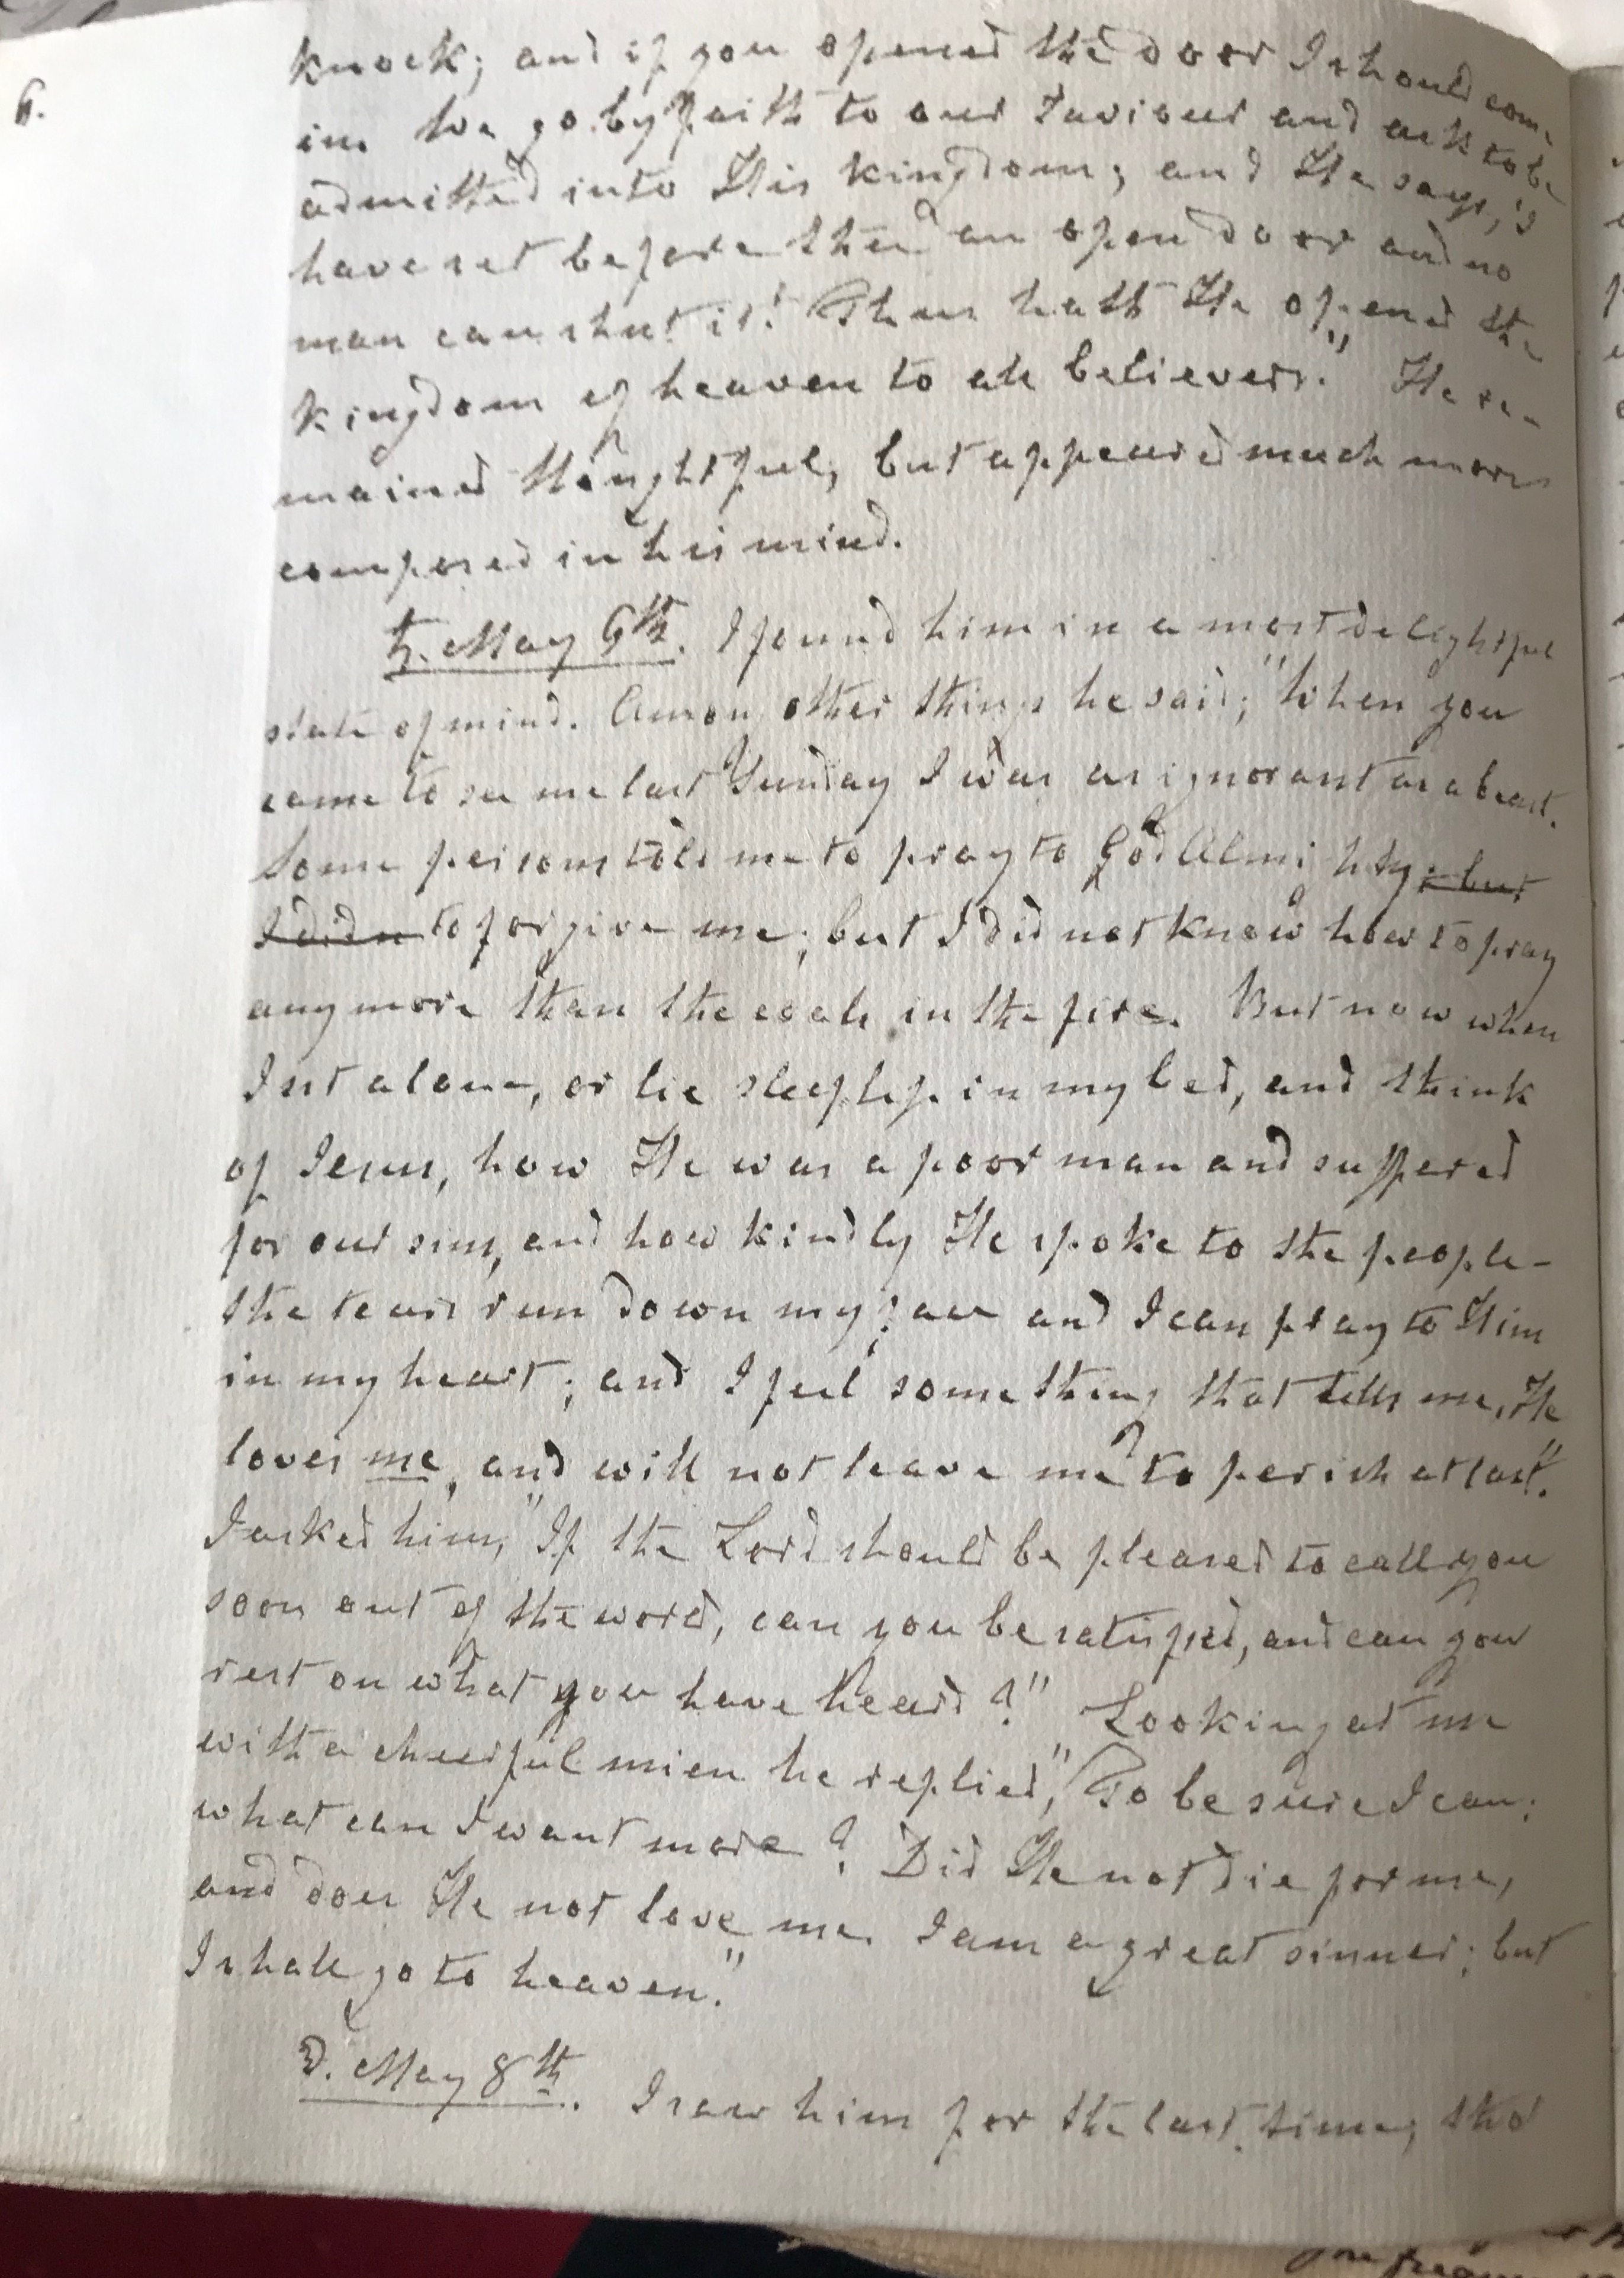 6.
knock; and if you opened the door I should come
in. We go by faith to our Saviour and ask to be
admitted into His kingdom; and He says, 'I
have set before thee an open door and no
man can shut it.' Thus hath He opened the
kingdom of heaven to all believers." He re-
mained thoughtful, but appeared much more
composed in his mind.
♄. May 6th. I found him in a most delightful
state of mind. Among other things he said; "When you
came to see me last Sunday I was as ignorant as a beast.
Some persons told me to pray to God Almighty; but
I didn to forgive me; but I did not know how to pray
any more than the coals in the fire. But now when
I sit alone, or lie sleepless in my bed, and think
of Jesus, how He was a poor man and suffered
for our sins, and how kindly He spoke to the people –
the tears run down my face and I can pray to Him
in my heart; and I feel something that tells me, He
loves me, and will not leave me to perish at last."
I asked him, "If the Lord should be pleased to call you
soon out of the world, can you be satisfied, and can you
rest on what you have heard?" Looking at me
with a cheerful mien he replied, "To be sure I can;
what can I want more? Did He not die for me,
and does He not love me. I am a great sinner; but
I shall go to heaven."
☽. May 8th. I saw him for the last time, tho'